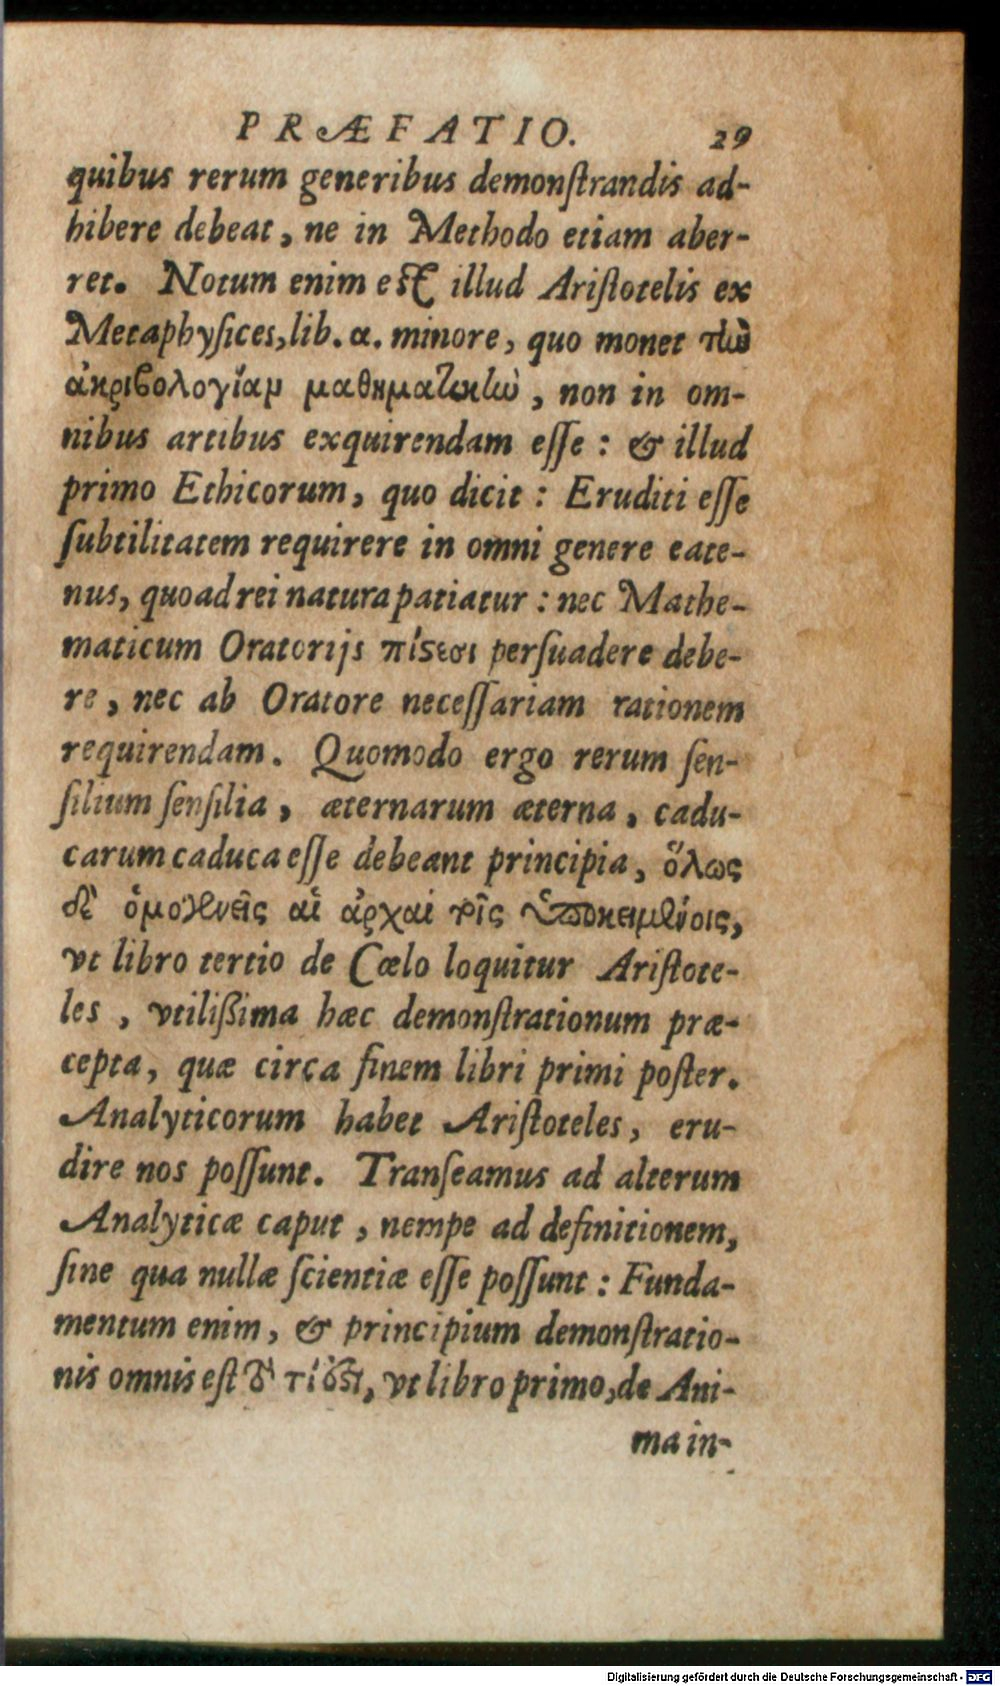 PRÆFATIO. 29
quibus rerum generibus demonſtrandis ad-
hibere debeat, ne in Methodo etiam aber-
ret. Notum enim eſt illud Ariſtotelis ex
Metaphyſices, lib. α. minore, quo monet τὴν
ἀκριβολογίαν μαθηματικὴν, non in om-
nibus artibus exquirendam eſſe: & illud
primo Ethicorum, quo dicit: Eruditi eſſe
ſubtilitatem requirere in omni genere eate-
nus, quoad rei natura patiatur: nec Mathe-
maticum Oratorijs πίϛεσι perſuadere debe-
re, nec ab Oratore neceſſariam rationem
requirendam. Quomodo ergo rerum ſen-
ſilium ſenſilia, æternarum æterna, cadu-
carum caduca eſſe debeant principia, ὅλως
δὲ ὁμογενεῖς αἱ ἀρχαὶ τοῖς ὑποκειμένοις,
vt libro tertio de Cœlo loquitur Ariſtote-
les, vtilißima hæc demonſtrationum præ-
cepta, quæ circa finem libri primi poſter.
Analyticorum habet Ariſtoteles, eru-
dire nos poſſunt. Tranſeamus ad alterum
Analyticæ caput, nempe ad definitionem,
ſine qua nullæ ſcientiæ eſſe poſſunt: Funda-
mentum enim, & principium demonſtratio-
nis omnis eſt τὸ τί ἐϛι, vt libro primo, de Ani-
ma in-
Digitalisierung gefördert durch die Deutsche Forschungsgemeinschaft - DFG